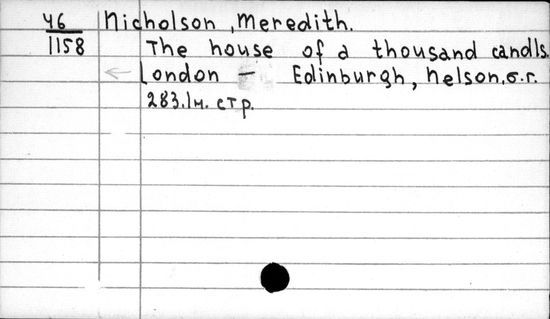 46 Nicholson, Meredith.
1158 The house of a thousand candls.
London - Edinburgh, Nelson, б.г.
283.1м. стр.